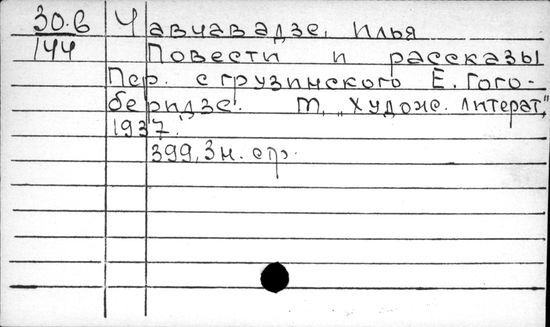 30.6 Чавчавадзе, Илья
144 Повести и рассказы
Пер. с грузинского Е. Гого-
беридзе. М, „Худож. литерат,"
1937.
399, 3 н. стр.